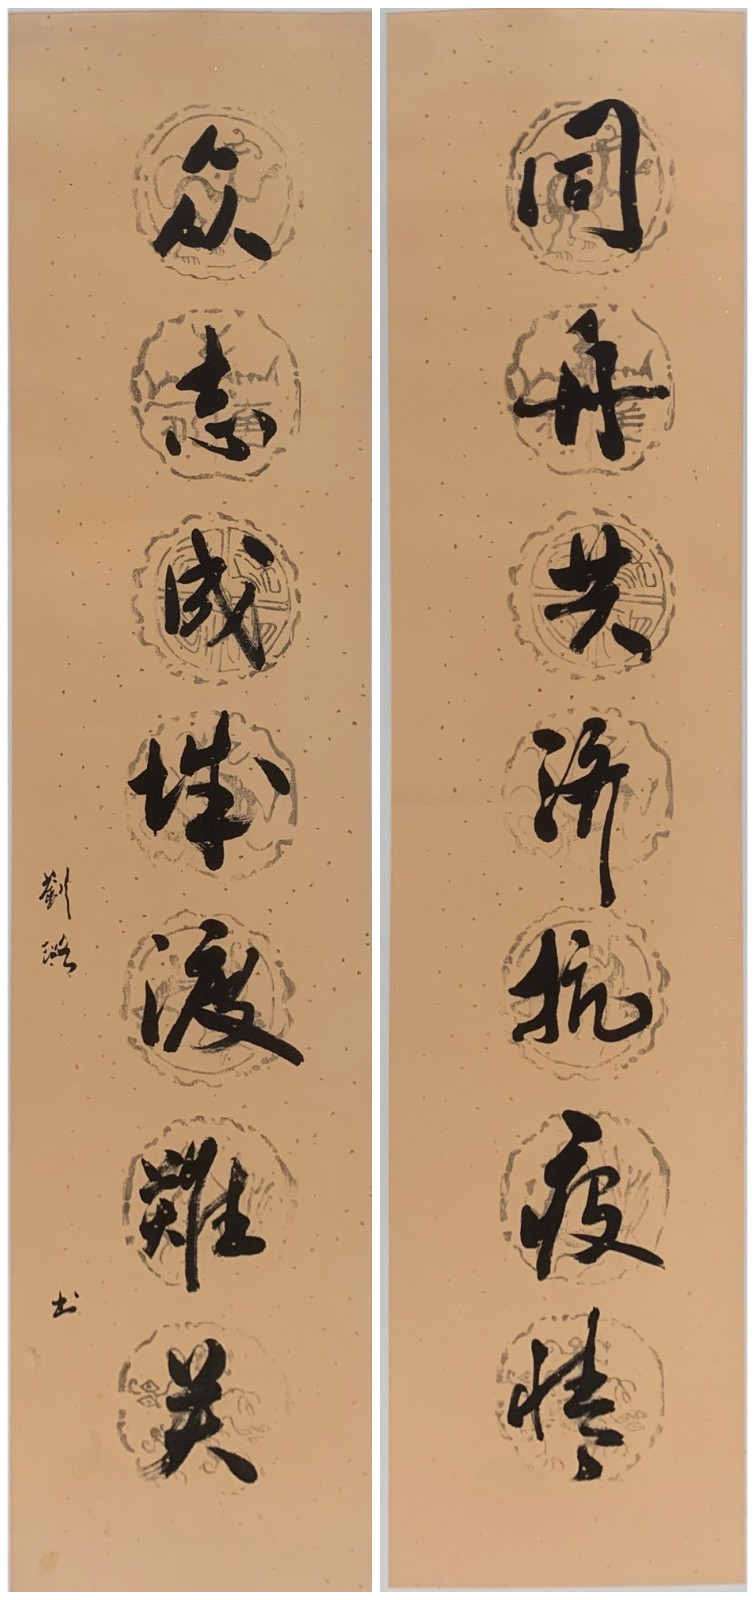 同舟共济抗疫情
众志成城渡難关
劉
书